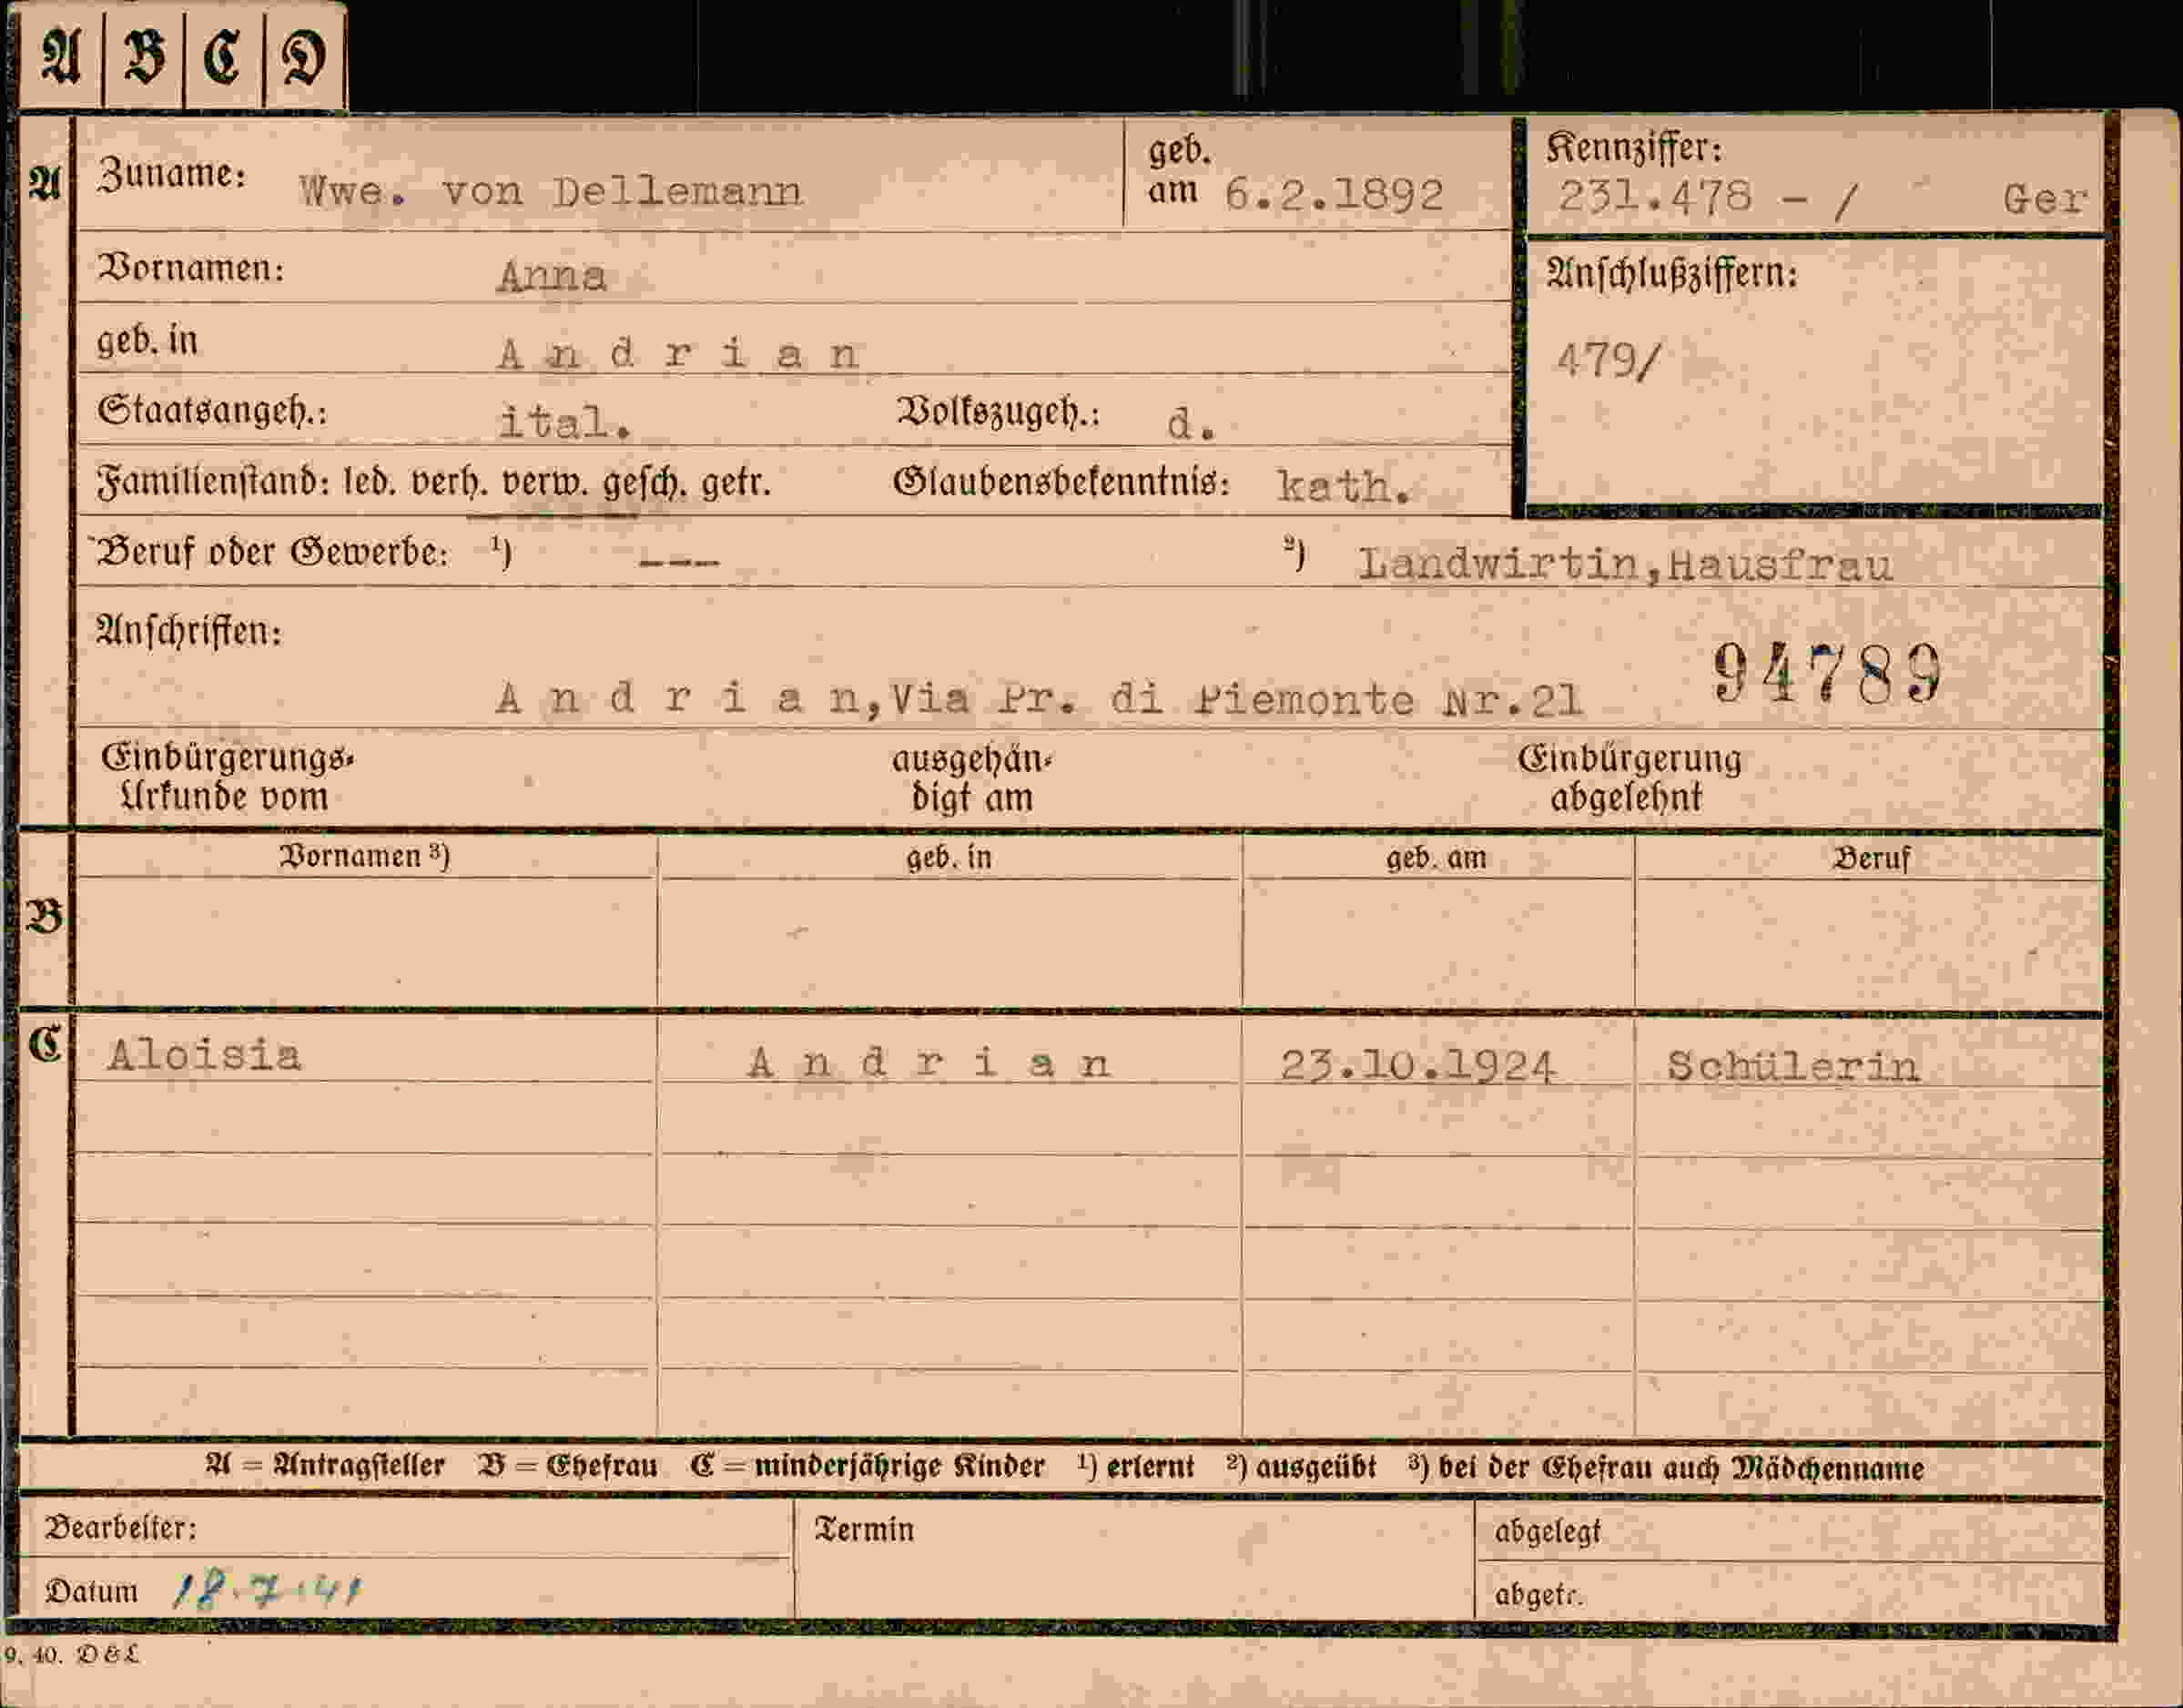 A B C D
A Zuname: Wwe. von Dellemann geb. am 6.2.1892 Kennziffer: 231.478 - / Ger
Vornamen: Anna Anschlußziffern:
geb. in A n d r i a n 479/
Staatsangeh.: ital. Volkszugeh.: d.
Familienstand: led. verh. verw. gesch. getr. Glaubensbekenntnis: kath.
Beruf oder Gewerbe: ¹) --- ²) Landwirtin,Hausfrau
Anschriften:
94789
A n d r i a n,Via Pr. di Piemonte Nr.21
Einbürgerungs- ausgehän- Einbürgerung
Urkunde vom digt am abgelehnt
Vornamen ³) geb. in geb. am Beruf
B
C Aloisia A n d r i a n 23.10.1924 Schülerin
A = Antragsteller B = Ehefrau C = minderjährige Kinder ¹) erlernt ²) ausgeübt ³) bei der Ehefrau auch Mädchenname
Bearbeiter: Termin abgelegt
Datum 18.7.41 abgetr.
9. 40. D & L